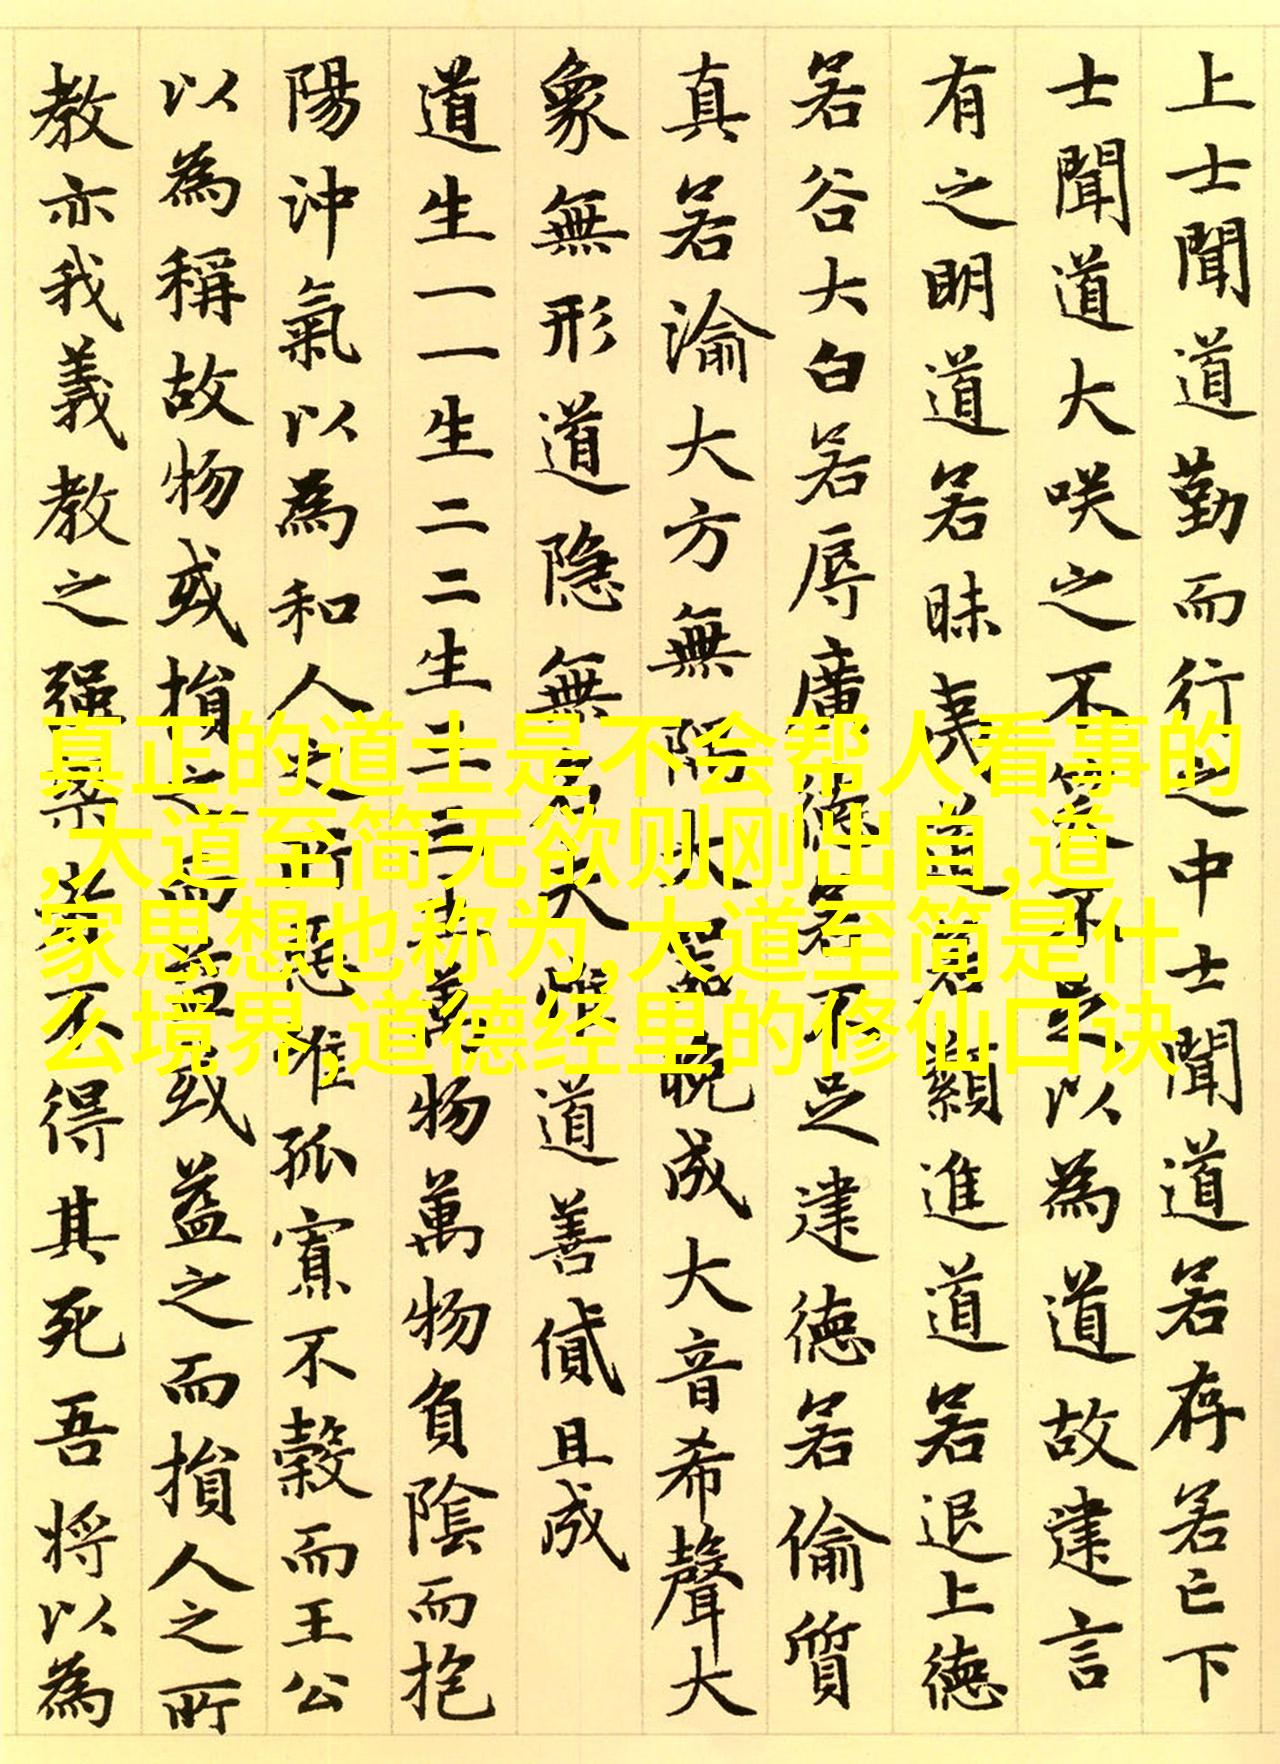 上士聞道勤而行之中士聞道若存若亡下
士聞道大咲之不笑不足以為道故建言
有之明道若昧夷道若類進道若退上德
若谷大白若辱廣德若不足建德若偷質
真若渝大方無隅大器晚成大音希聲大
象無形道隐無名夫惟道善貸且成
道生一一生二二生三三生萬物萬物負陰而抱
陽沖氣以為和人之所惡惟孤寡不穀而王公
以為稱故物或損之而益或益之而損人之所
教亦我義教之强梁者不得其死吾将以為
真正的道士是不会帮人看事的
,大道至简无欲则刚出自,道
家思想也称为,大道至简是什
么境界,道德经里的修仙口诀